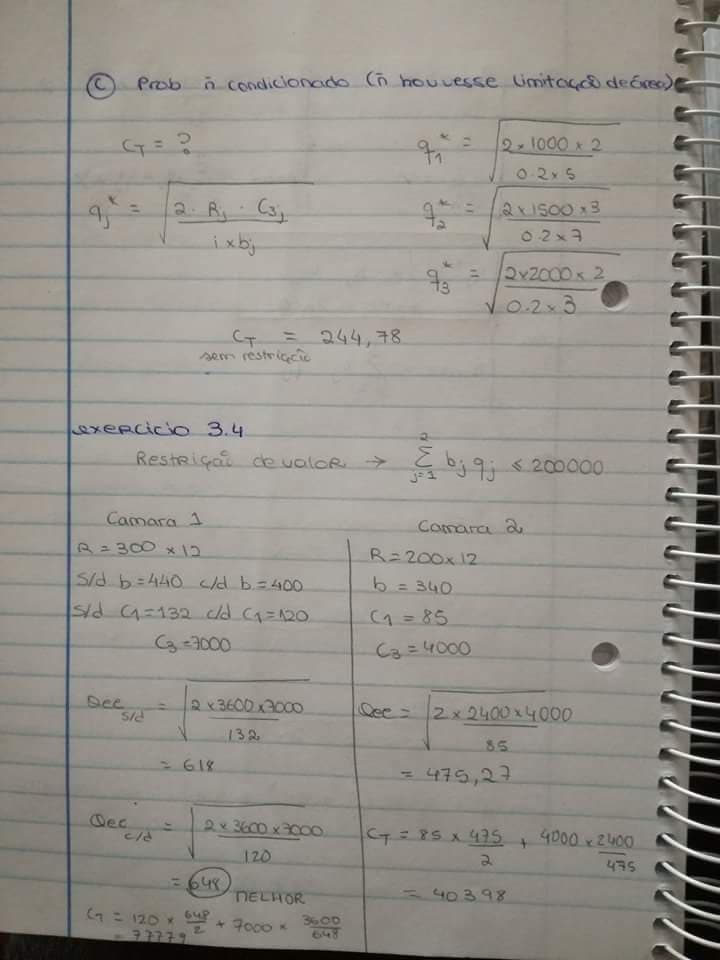 Ⓒ Prob ñ condicionado (ñ houvesse limitação de área)
C_T = ?
q_j* = √(2 · R_j · C_3j / i × b_j)
q_1* = √(2 × 1000 × 2 / 0.2 × 5)
q_2* = √(2 × 1500 × 3 / 0.2 × 7)
q_3* = √(2 × 2000 × 2 / 0.2 × 3)
C_T = 244,78
sem restrição
exercicio 3.4
Restrição de valor → Σ_{j=1}^{2} b_j q_j ≤ 200000
Camara 1
R = 300 × 12
s/d b = 440 c/d b = 400
s/d C1 = 132 c/d C1 = 120
C3 = 7000
Qec s/d = √(2 × 3600 × 7000 / 132)
= 618
Qec c/d = √(2 × 3600 × 7000 / 120)
= 648 MELHOR
C_T = 120 × 648/2 + 7000 × 3600/648
= 77779
Camara 2
R = 200 × 12
b = 340
C1 = 85
C3 = 4000
Qec = √(2 × 2400 × 4000 / 85)
= 475,27
C_T = 85 × 475/2 + 4000 × 2400/475
= 40398